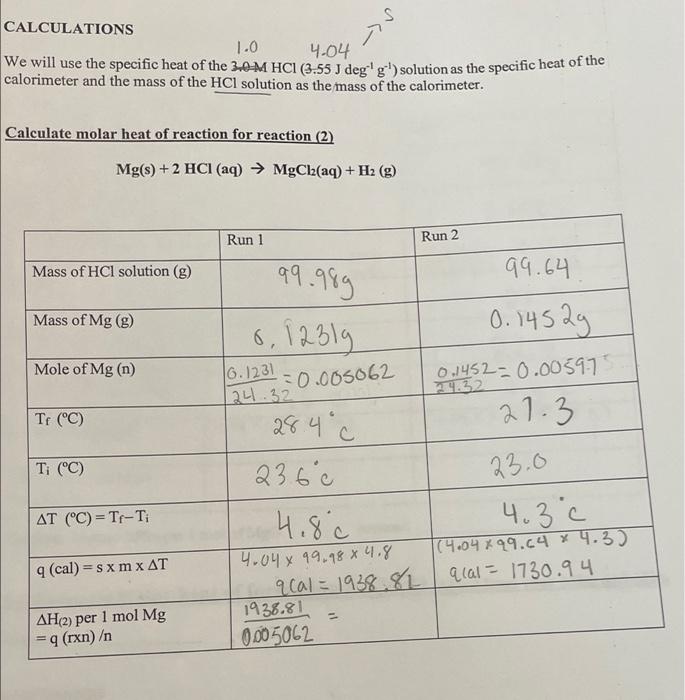 S
CALCULATIONS
1.0 4.04
We will use the specific heat of the 3.0 M HCl (3.55 J deg⁻¹ g⁻¹) solution as the specific heat of the
calorimeter and the mass of the HCl solution as the mass of the calorimeter.
Calculate molar heat of reaction for reaction (2)
Mg(s) + 2 HCl (aq) → MgCl₂(aq) + H₂ (g)
Run 1 Run 2
Mass of HCl solution (g) 99.98g 99.64
Mass of Mg (g) 0.1231g 0.1452g
Mole of Mg (n) 0.1231 = 0.005062 0.1452 = 0.005975
24.32 24.32
Tf (°C) 28.4°c 27.3
Ti (°C) 23.6°c 23.0
ΔT (°C) = Tf – Ti 4.8°c 4.3°c
q (cal) = s x m x ΔT 4.04 x 99.98 x 4.8 (4.04 x 99.64 x 4.3)
qcal = 1938.81 qcal = 1730.94
ΔH(2) per 1 mol Mg 1938.81 =
= q (rxn) /n 0.005062